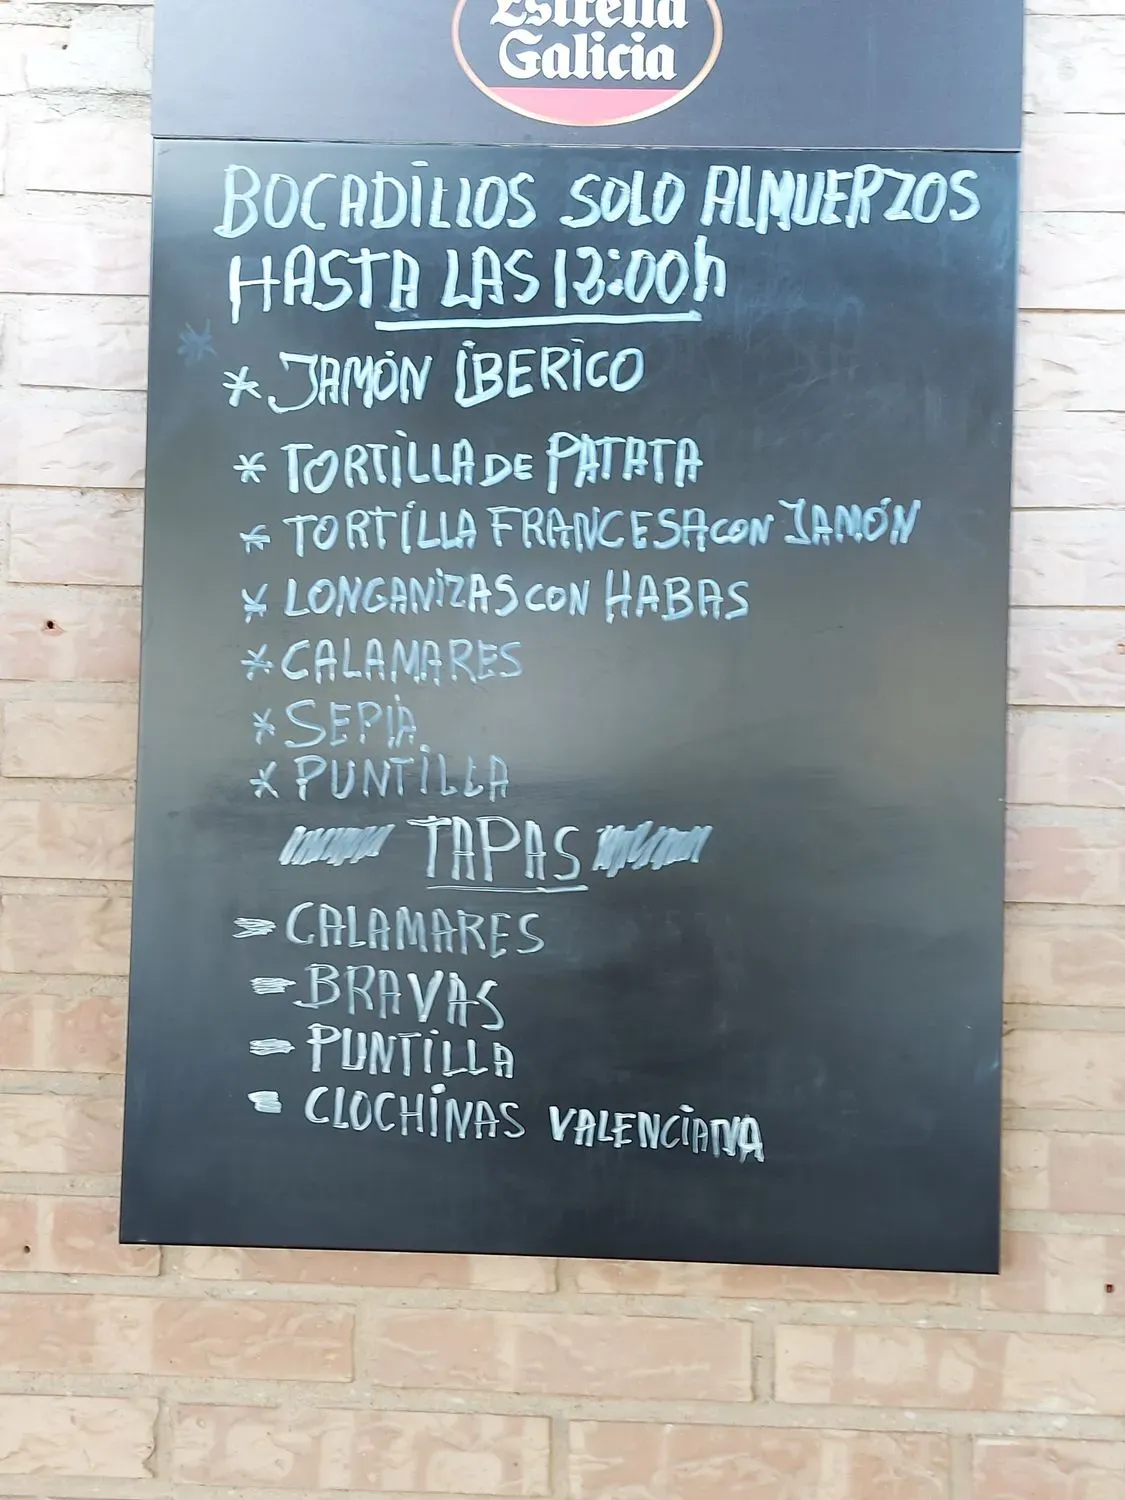 Estrella
Galicia
BOCADILLOS SOLO ALMUERZOS
HASTA LAS 12:00h
* JAMÓN IBERICO
* TORTILLA DE PATATA
* TORTILLA FRANCESA CON JAMÓN
* LONGANIZAS CON HABAS
* CALAMARES
* SEPIA
* PUNTILLA
TAPAS
- CALAMARES
- BRAVAS
- PUNTILLA
- CLOCHINAS VALENCIANA